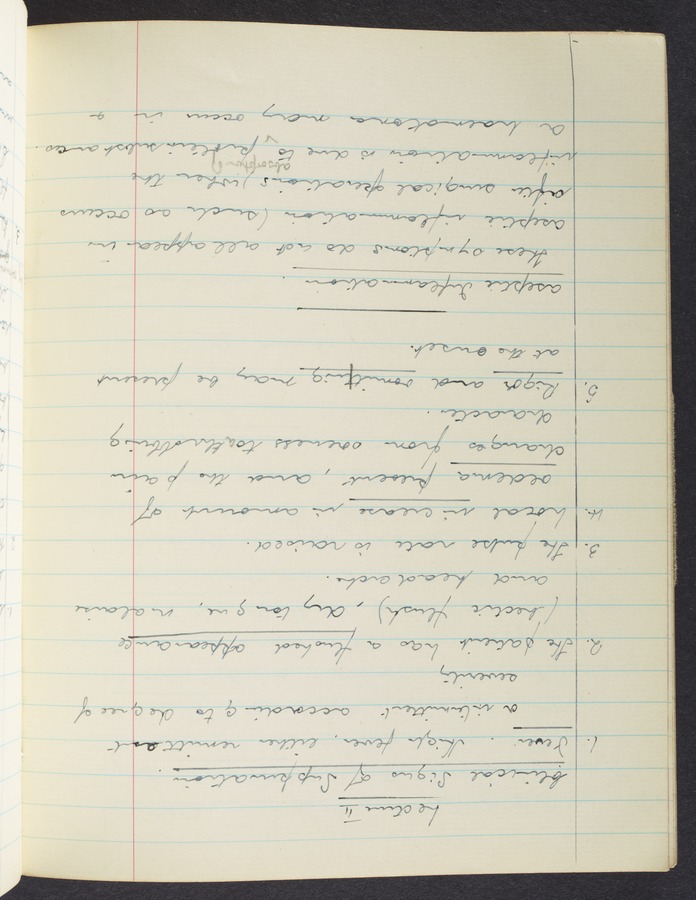 Lecture II
Clinical Signs of Suppuration.
1. Fever. High fever, either remittant
or intermittent according to degree of
severity
2. The patient has a flushed appearance
(hectic flush), dry tongue, malaise
and headache.
3. The pulse rate is raised.
4. Local increase in amount of
oedema present, and the pain
changes from soreness to throbbing
character.
5. Rigor and vomiting may be present
at the onset.
aseptic Inflammation.
these symptoms do not all appear in
aseptic inflammation (such as occurs
after surgical operations) when the
absorption of
inflammation is due to protein substances.
a haematoma may occur in a